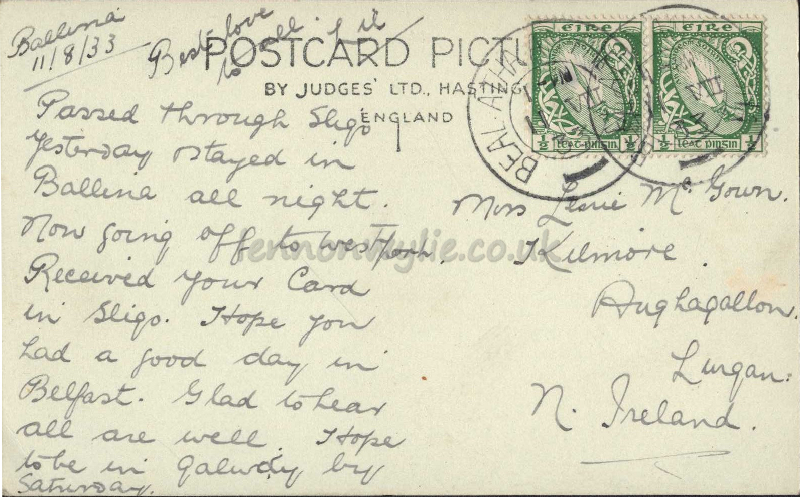 Ballina
11/8/33
Best love
to all
POSTCARD
BY JUDGES' LTD., HASTING
ENGLAND
Passed through Sligo
Yesterday stayed in
Ballina all night.
Now going off to westport.
Received your Card
in Sligo. Hope you
had a good day in
Belfast. Glad to hear
all are well. Hope
to be in Galway by
Saturday.
EIRE
½ LEAT PINGIN ½
EIRE
½ LEAT PINGIN ½
BEAL ATHA
VIII
VIII
Miss Leslie McGown.
Kilmore.
Aughagallon.
Lurgan.
N. Ireland.
lennonwylie.co.uk